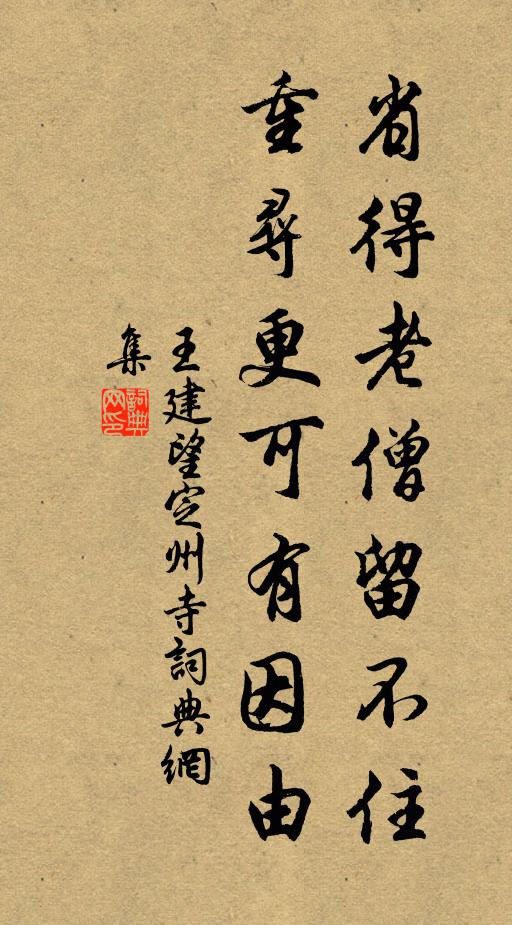 省得老僧留不住
重尋更可有因由
王建望定州寺詞典網
集
詞典
网印